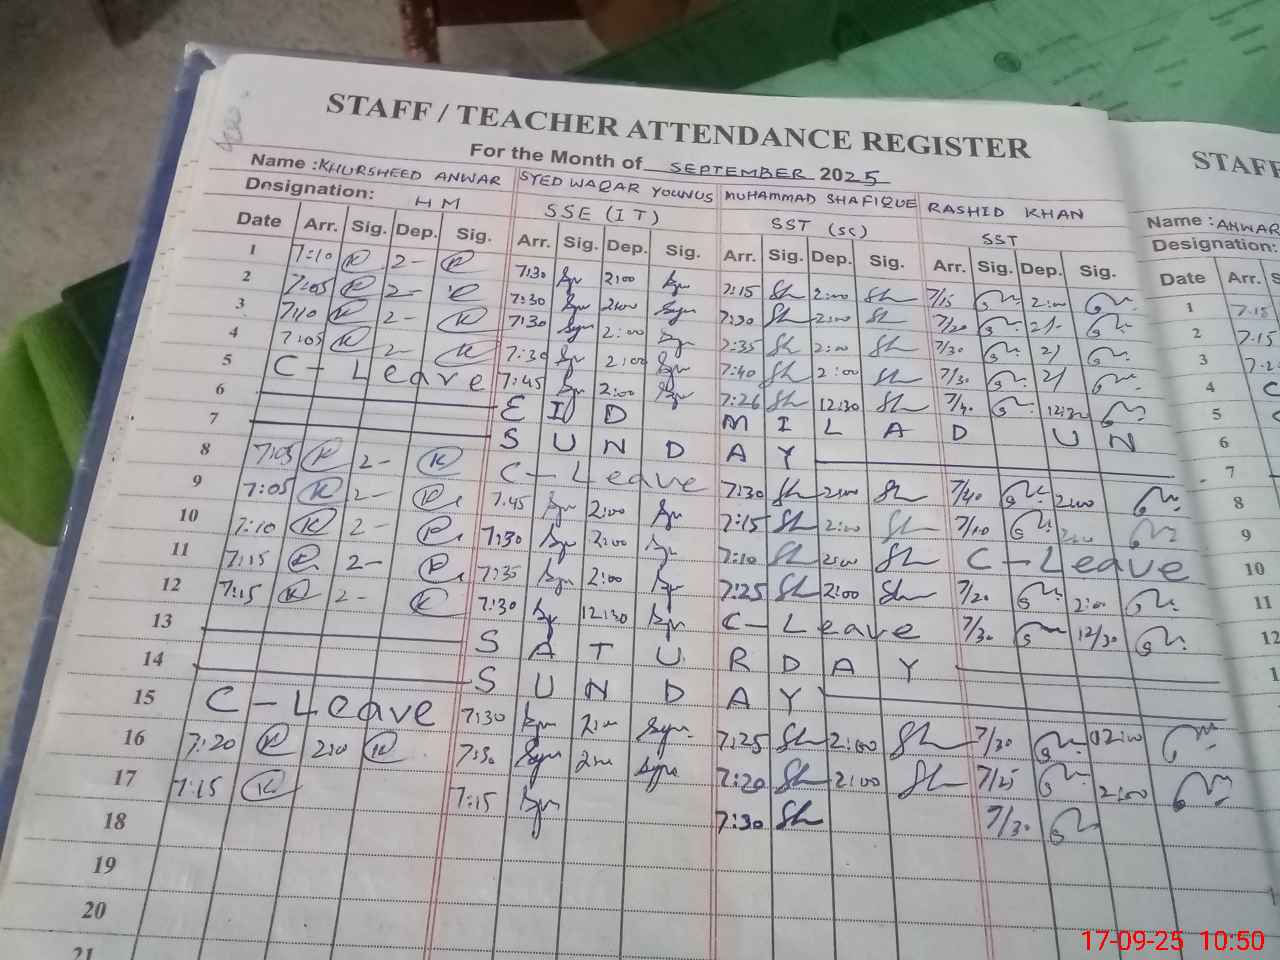 STAFF / TEACHER ATTENDANCE REGISTER
For the Month of SEPTEMBER 2025
Name : KHURSHEED ANWAR SYED WAQAR YOUNUS MUHAMMAD SHAFIQUE RASHID KHAN
Designation: HM SSE (IT) SST (SC) SST
Date Arr. Sig. Dep. Sig. Arr. Sig. Dep. Sig. Arr. Sig. Dep. Sig. Arr. Sig. Dep. Sig.
1 7:10 2- 7:30 2:00 7:15 2:00 7/15 2:00
2 7:05 2- 7:30 2:00 7:30 2:00 7/20 2/-
3 7:10 2- 7:30 2:00 7:35 2:00 7/30 2/
4 7:05 2- 7:30 2:00 7:40 2:00 7/30 2/
5 C - Leave 7:45 2:00 7:26 12:30 12:30
6 EID MILAD UN
7 SUNDAY
8 7:05 2- C - Leave 7:30 2:00 7/40 2:00
9 7:05 2- 7:45 2:00 7:15 2:00 7/10 2:00
10 7:10 2- 7:30 2:00 7:10 2:00 C - Leave
11 7:15 2- 7:35 2:00 7:25 2:00 7/20 2:00
12 7:15 2- 7:30 12:30 C - Leave 7/30 12/30
13 SATURDAY
14 SUNDAY
15 C - Leave 7:30 7:25 2:00 7/30 02:00
16 7:20 2:0 7:30 7:20 2:00 7/25 2:00
17 7:15 7:15 7:30 7/30
18
19
20
21
STAFF
Name : ANWAR
Designation:
Date Arr. S
1 7.15
2 7.15
3
4
5
6
7
8
9
10
11
12
17-09-25 10:50